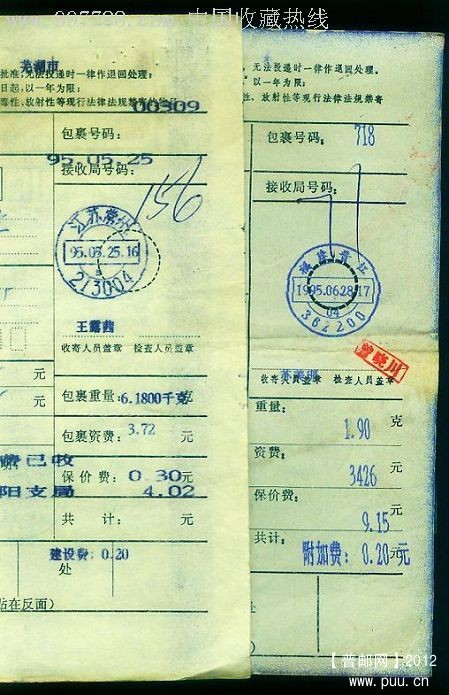 中国收藏热线
芜湖市
批准,无法投递时一律作退回处理;
日起,以一年为限;
毒性、放射性等现行法律法规禁寄
00309
包裹号码:
95.05.25
接收局号码:
156
江苏常州
95.05.25.16
213004
王露茜
收寄人员盖章 检查人员盖章
元
包裹重量:6.1800千克
包裹资费:3.72 元
元
费已收
保价费:0.30元
阳支局
4.02
共 计: 元
建设费:0.20
处
贴在反面)
,无法投递时一律作退回处理。
以一年为限;
性、放射性等现行法律法规禁寄
包裹号码:718
接收局号码:
福建晋江
1995.06.28.17
04
362200
曾晓川
收寄人员盖章 检查人员盖章
重量:
1.90 克
资费:
3426 元
保价费:
9.15 元
共计:
附加费:0.20元 元
处
面)
【普邮网】2012
www.puu.cn